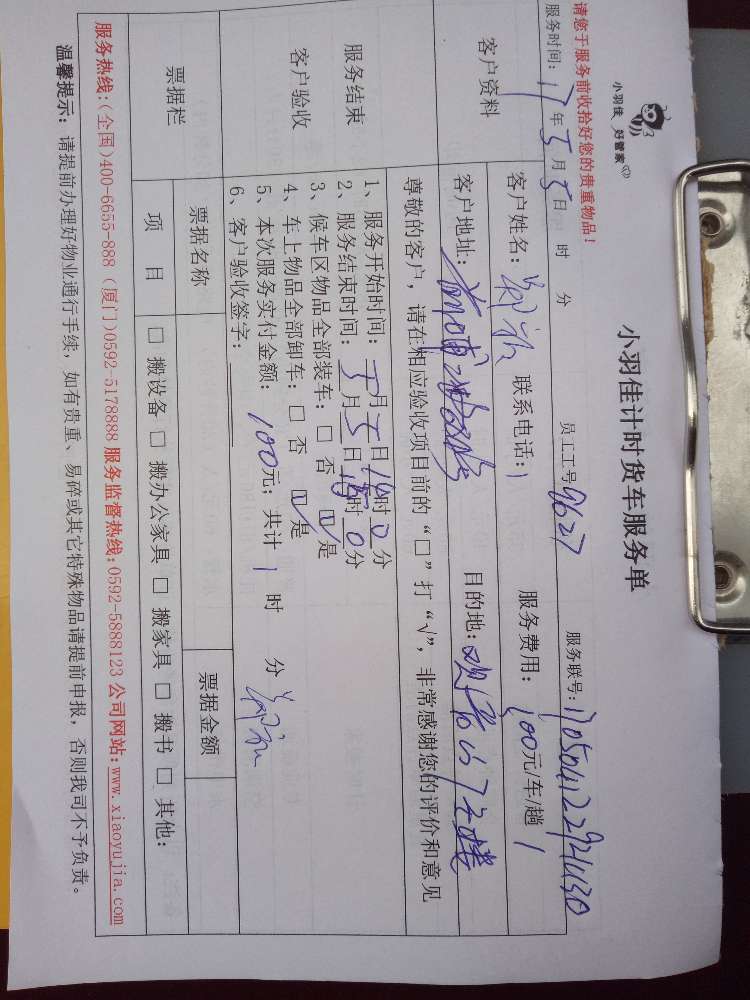 小羽佳 好管家
小羽佳计时货车服务单
请您于服务前收拾好您的贵重物品！
服务时间：17年5月5日 时 分 员工工号 9627 服务联号：
客户资料
客户姓名： 联系电话： 服务费用：100元/车/趟
客户地址： 目的地：
尊敬的客户，请在相应验收项目前的“□”打“√”，非常感谢您的评价和意见
服务结束
客户验收
1、服务开始时间：5月5日14时0分
2、服务结束时间：5月5日15时0分
3、候车区物品全部装车：□ 否 ☑ 是
4、车上物品全部卸车：□ 否 ☑ 是
5、本次服务实付金额：100元；共计 1 时 分
6、客户验收签字：
票据栏
票据名称 票据金额
项 目 □ 搬设备 □ 搬办公家具 □ 搬家具 □ 搬书 □ 其他：
服务热线：(全国)400-6655-888 (厦门)0592-5178888 服务监督热线：0592-5888123 公司网站：www.xiaoyujia.com
温馨提示：请提前办理好物业通行手续，如有贵重、易碎或其它特殊物品请提前申报，否则我司不予负责。